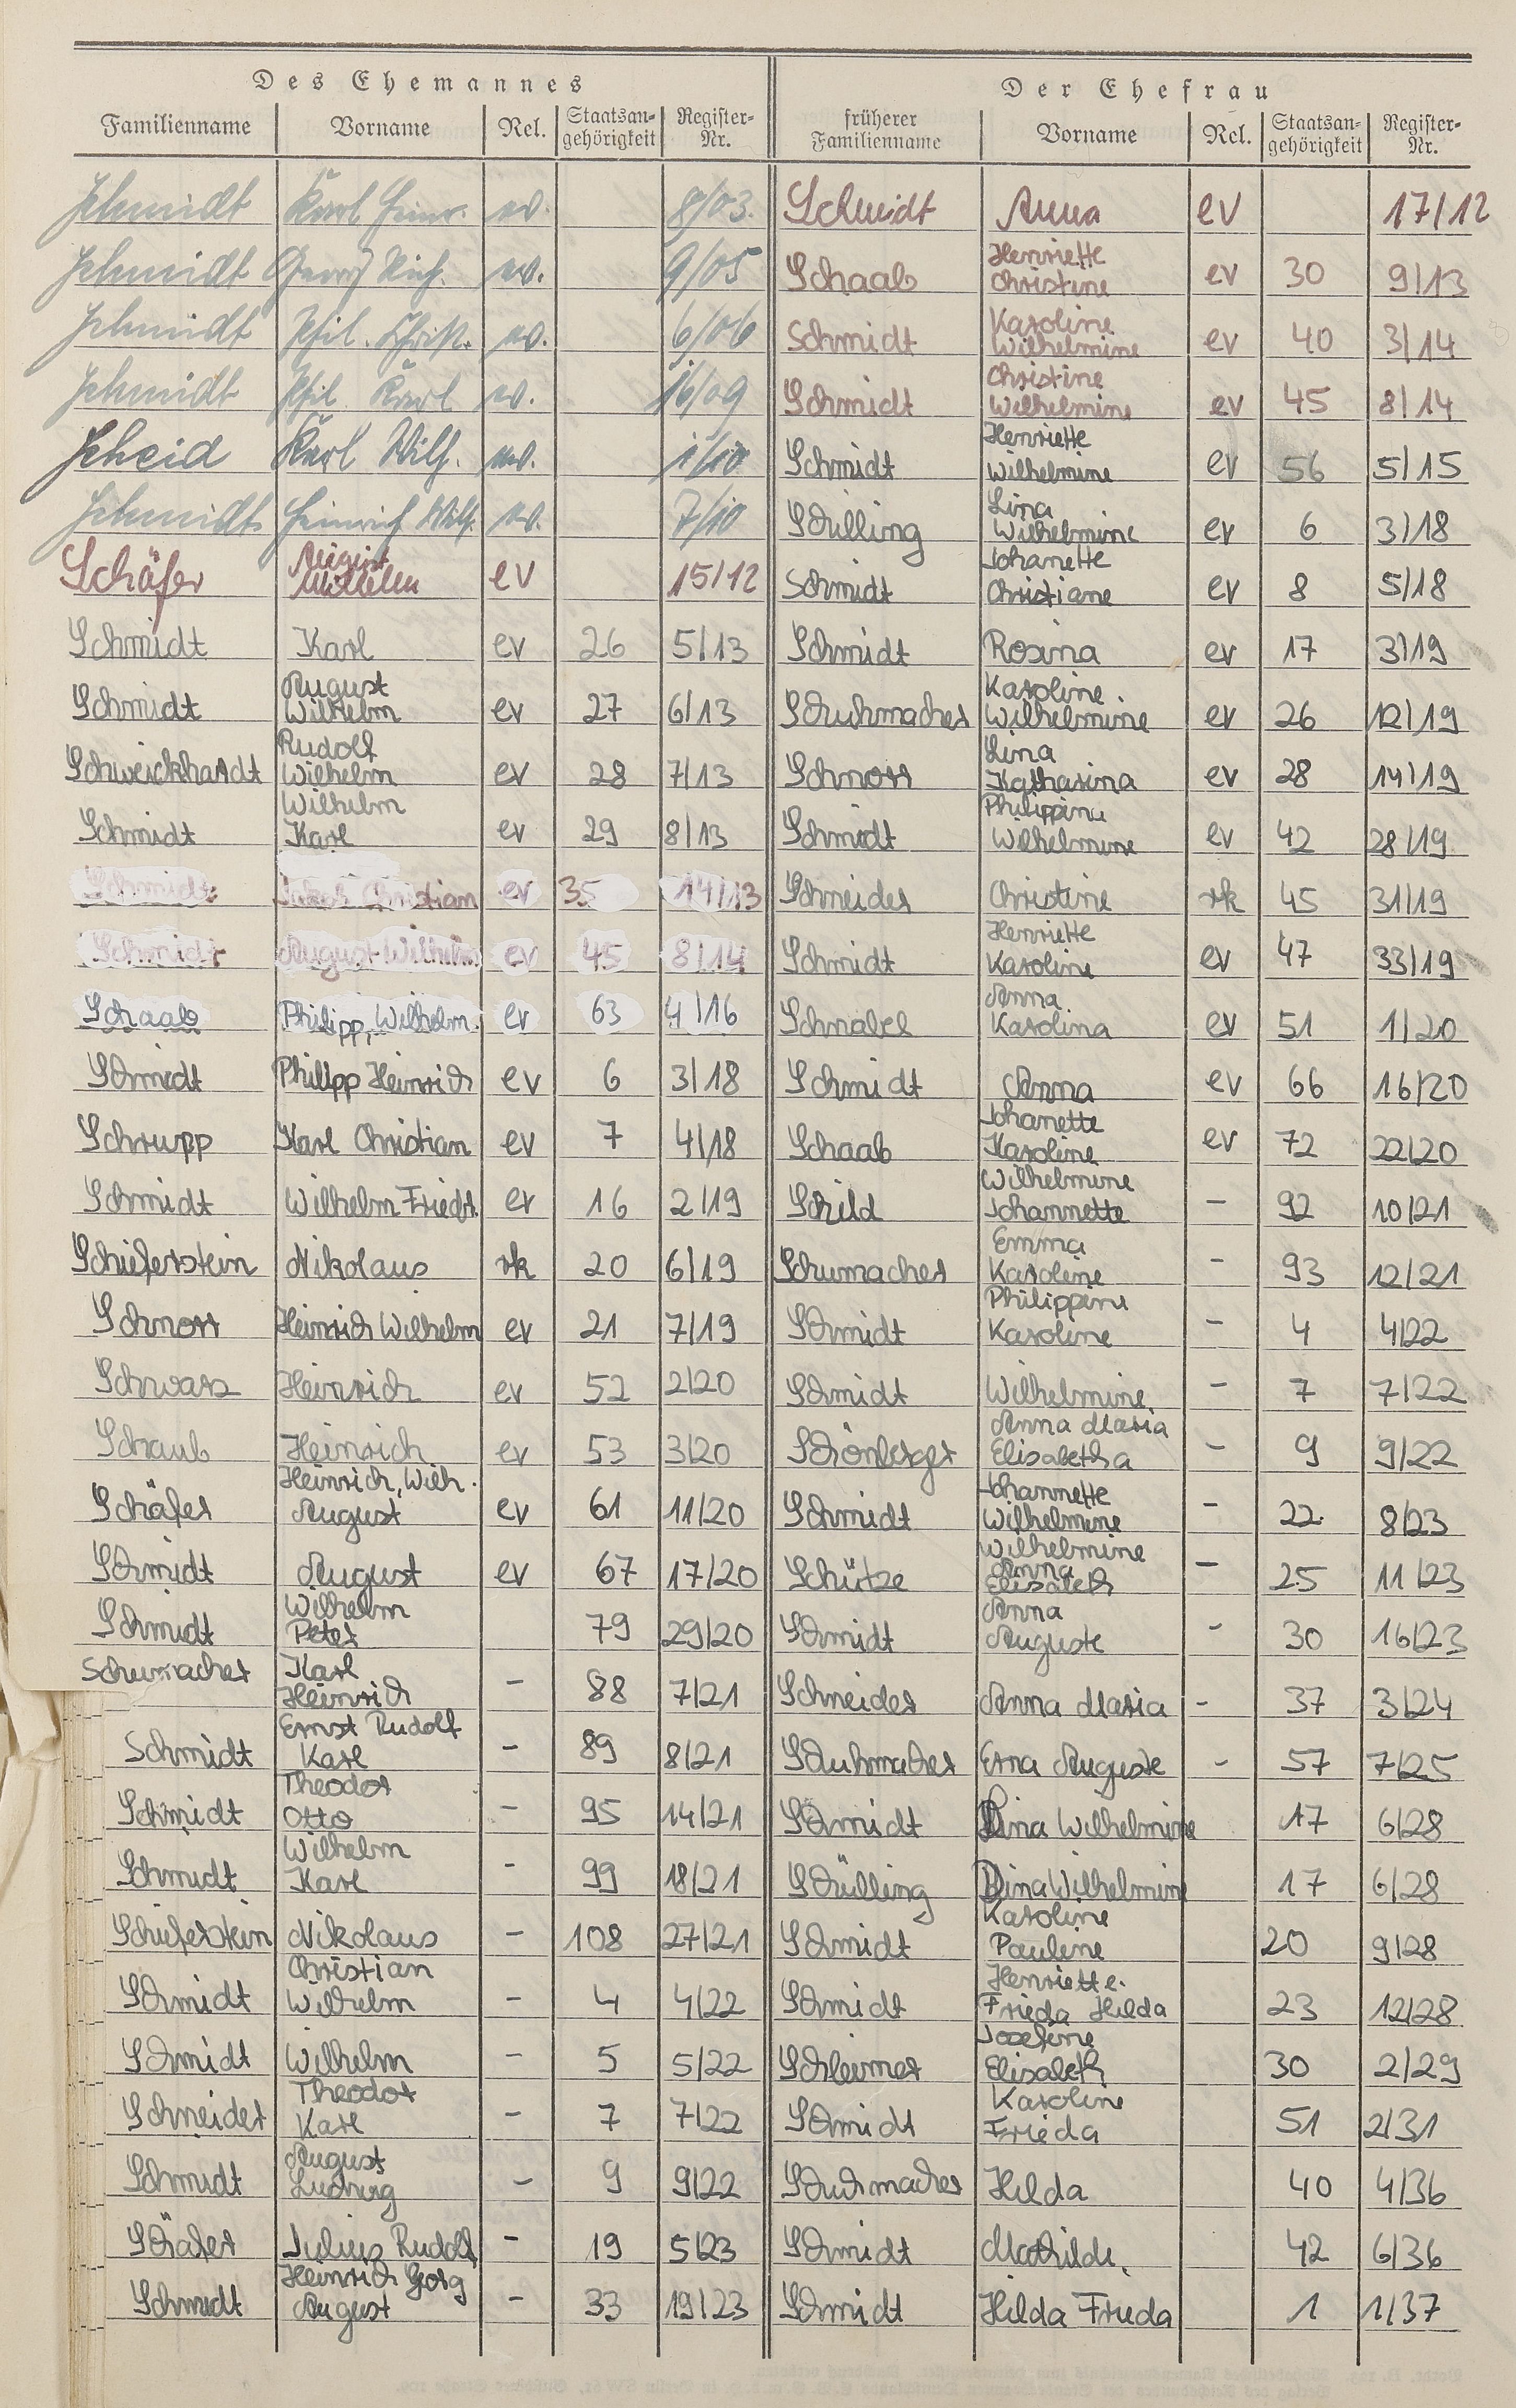 Des Ehemannes Der Ehefrau
Familienname Vorname Rel. Staatsan-gehörigkeit Register-Nr. früherer Familienname Vorname Rel. Staatsan-gehörigkeit Register-Nr.
Schmidt Karl Heinr. ev. 8/03. Schmidt Anna ev 17/12
Schmidt Georg Rich. ev. 9/05 Schaab Henriette Christine ev 30 9/13
Schmidt Phil. Christ. ev. 6/06 Schmidt Karoline Wilhelmine ev 40 3/14
Schmidt Phil Karl ev. 16/09 Schmidt Christine Wilhelmine ev 45 8/14
Scheid Karl Wilh. ev. 1/10 Schmidt Henriette Wilhelmine ev 56 5/15
Schmidt Heinrich Wilh. ev. 7/10 Schilling Lina Wilhelmine ev 6 3/18
Schäfer August Wilhelm ev 15/12 Schmidt Johanette Christiane ev 8 5/18
Schmidt Karl ev 26 5/13 Schmidt Rosina ev 17 3/19
Schmidt August Wilhelm ev 27 6/13 Schuhmacher Karoline Wilhelmine ev 26 12/19
Schweickhardt Rudolf Wilhelm ev 28 7/13 Schnorr Lina Katharina ev 28 14/19
Schmidt Wilhelm Karl ev 29 8/13 Schmidt Philippine Wilhelmine ev 42 28/19
Schmidt Jakob Christian ev 35 14/13 Schneider Christine rk 45 31/19
Schmidt August Wilhelm ev 45 8/14 Schmidt Henriette Karoline ev 47 33/19
Schaab Philipp, Wilhelm. ev 63 4/16 Schnabel Anna Karolina ev 51 1/20
Schmidt Philipp Heinrich ev 6 3/18 Schmidt Anna ev 66 16/20
Schrupp Karl Christian ev 7 4/18 Schaab Johanette Karoline ev 72 22/20
Schmidt Wilhelm Friedr. ev 16 2/19 Schild Wilhelmine Johannette - 92 10/21
Schieferstein Nikolaus rk 20 6/19 Schumacher Emma Karoline - 93 12/21
Schnorr Heinrich Wilhelm ev 21 7/19 Schmidt Philippine Karoline - 4 4/22
Schwarz Heinrich ev 52 2/20 Schmidt Wilhelmine - 7 7/22
Schaub Heinrich ev 53 3/20 Schönberger Anna Maria Elisabetha - 9 9/22
Schäfer Heinrich, Wilh. August ev 61 11/20 Schmidt Johannette Wilhelmine - 22 8/23
Schmidt August ev 67 17/20 Schütze Wilhelmine Anna Elisabeth - 25 11/23
Schmidt Wilhelm Peter 79 29/20 Schmidt Anna Auguste - 30 16/23
Schumacher Karl Heinrich - 88 7/21 Schneider Anna Maria - 37 3/24
Schmidt Ernst Rudolf Karl - 89 8/21 Schuhmacher Erna Auguste - 57 7/25
Schmidt Theodor Otto - 95 14/21 Schmidt Lina Wilhelmine 17 6/28
Schmidt Wilhelm Karl - 99 18/21 Schülling Lina Wilhelmine 17 6/28
Schieferstein Nikolaus - 108 27/21 Schmidt Karoline Pauline 20 9/28
Schmidt Christian Wilhelm - 4 4/22 Schmidt Henriette. Frieda Hilda 23 12/28
Schmidt Wilhelm - 5 5/22 Schleimer Josefine Elisabeth 30 2/29
Schneider Theodor Karl - 7 7/22 Schmidt Karoline Frieda 51 2/31
Schmidt August Ludwig - 9 9/22 Schuhmacher Hilda 40 4/36
Schäfer Julius Rudolf - 19 5/23 Schmidt Mathilde 42 6/36
Schmidt Heinrich Gorg August - 33 19/23 Schmidt Hilda Frieda 1 1/37